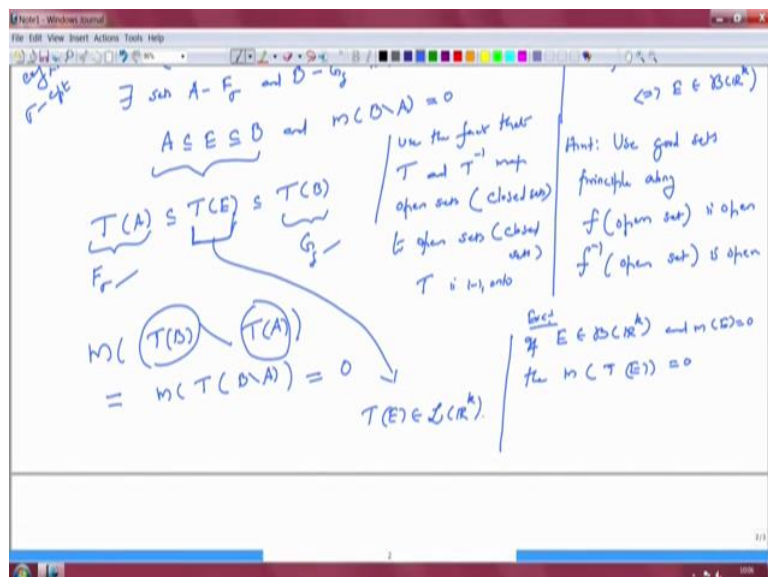 Note1 - Windows Journal
File Edit View Insert Actions Tools Help
∃ sets A - F_σ and B - G_δ
A ⊆ E ⊆ B and m(B\A) = 0
T(A) ⊆ T(E) ⊆ T(B)
F_σ
G_δ
m( T(B) \ T(A) )
= m( T(B\A) ) = 0
T(E) ∈ L(R^k).
use the fact that
T and T^-1 map
open sets (closed sets)
to open sets (closed
sets)
T is 1-1, onto
<=> E ∈ B(R^k)
Hint: Use good sets
principle along
f(open set) is open
f^-1(open set) is open
If E ∈ B(R^k) and m(E)=0
the m(T(E)) = 0
2
10:06